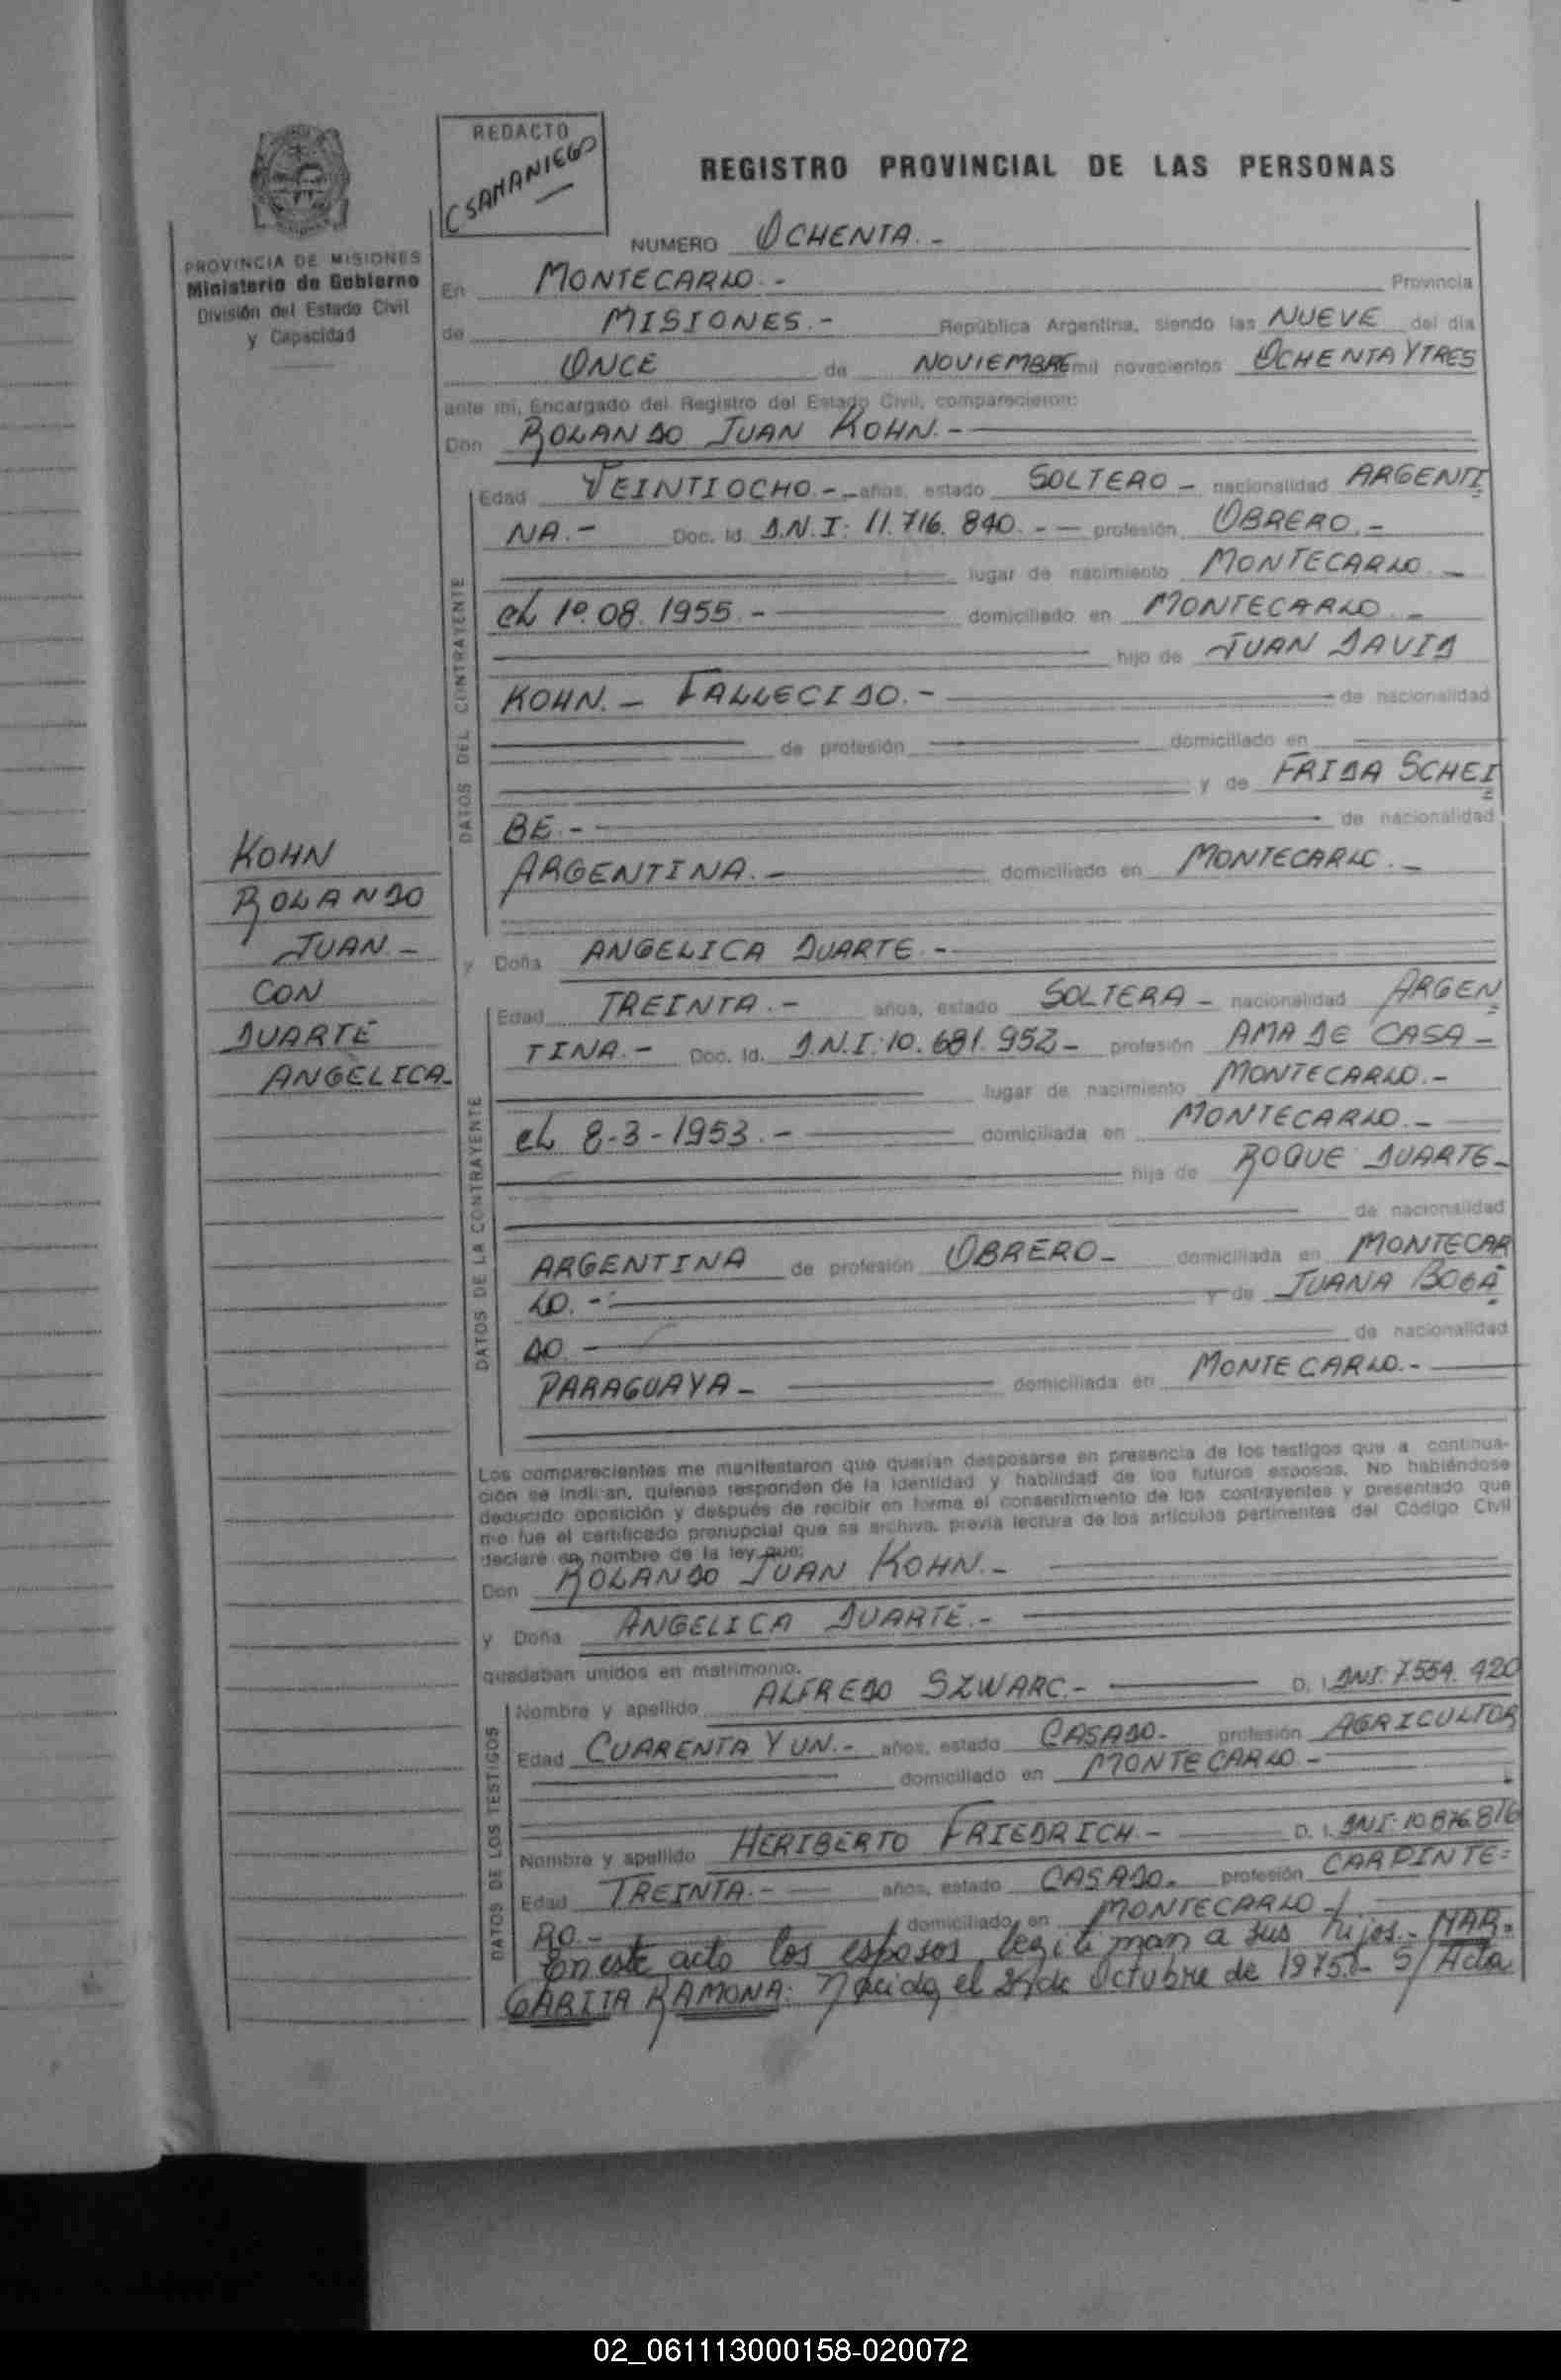 REDACTO
CSAMANIEGO
REGISTRO PROVINCIAL DE LAS PERSONAS
PROVINCIA DE MISIONES
Ministerio de Gobierno
División del Estado Civil
y Capacidad
NUMERO OCHENTA.-
En MONTECARLO.- Provincia
de MISIONES.- República Argentina, siendo las NUEVE del día
ONCE de NOVIEMBRE mil novecientos OCHENTA Y TRES
ante mi, Encargado del Registro del Estado Civil, comparecieron:
Don ROLANDO JUAN KOHN.-
DATOS DEL CONTRAYENTE
Edad VEINTIOCHO.- años, estado SOLTERO - nacionalidad ARGENTI
NA.- Doc. Id. D.N.I: 11.716.840.-- profesión OBRERO.-
lugar de nacimiento MONTECARLO.-
el 1º.08.1955.- domiciliado en MONTECARLO.-
hijo de JUAN DAVID
KOHN.- FALLECIDO.- de nacionalidad
de profesión domiciliado en
y de FRIDA SCHEI
BE.- de nacionalidad
ARGENTINA.- domiciliado en MONTECARLO.-
KOHN
ROLANDO
JUAN.-
CON
DUARTE
ANGELICA.-
y Doña ANGELICA DUARTE.-
DATOS DE LA CONTRAYENTE
Edad TREINTA.- años, estado SOLTERA - nacionalidad ARGEN
TINA.- Doc. Id. D.N.I: 10.681.952- profesión AMA DE CASA -
lugar de nacimiento MONTECARLO.-
el 8-3-1953.- domiciliada en MONTECARLO.-
hija de ROQUE DUARTE-
de nacionalidad
ARGENTINA de profesión OBRERO- domiciliada en MONTECAR
LO.- y de JUANA BOGA
DO. de nacionalidad
PARAGUAYA- domiciliada en MONTECARLO.-
Los comparecientes me manifestaron que querían desposarse en presencia de los testigos que a continua-
ción se indican, quienes responden de la identidad y habilidad de los futuros esposos. No habiéndose
deducido oposición y después de recibir en forma el consentimiento de los contrayentes y presentado que
me fue el certificado prenupcial que se archiva, previa lectura de los artículos pertinentes del Código Civil
declaré en nombre de la ley que:
Don ROLANDO JUAN KOHN.-
y Doña ANGELICA DUARTE.-
quedaban unidos en matrimonio.
DATOS DE LOS TESTIGOS
Nombre y apellido ALFREDO SZWARC.- D. I. DNI: 7.554.420
Edad CUARENTA Y UN.- años, estado CASADO- profesión AGRICULTOR
domiciliado en MONTECARLO-
Nombre y apellido HERIBERTO FRIEDRICH.- D. I. DNI: 10.876.876
Edad TREINTA.- años, estado CASADO- profesión CARPINTE=
RO.- domiciliado en MONTECARLO-
En este acto los esposos legitiman a sus hijos.- MAR=
GARITA RAMONA: Nacida el de Octubre de 1975.- S/ Acta
02_061113000158-020072